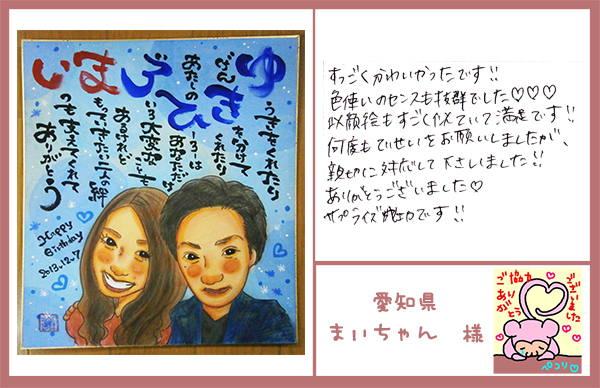 ゆうきをくれたり
げんきを分けて
くれたり
あたしのひーろーは
あなただけ
いろいろ大変なことも
あるけれど
まもっていきたい二人の絆
いつもささえてくれて
ありがとう
Happy
Birthday
2013.12.7
すっごくかわいかったです!!
色使いのセンスも抜群でした♡♡♡
似顔絵もすごく似ていて満足です!!
何度もていせいをお願いしましたが、
親切に対応して下さいました!!
ありがとうございました♡
サプライズ です!!
愛知県
まいちゃん 様
ご協力
ありがとう
ございました
ペコリ♡